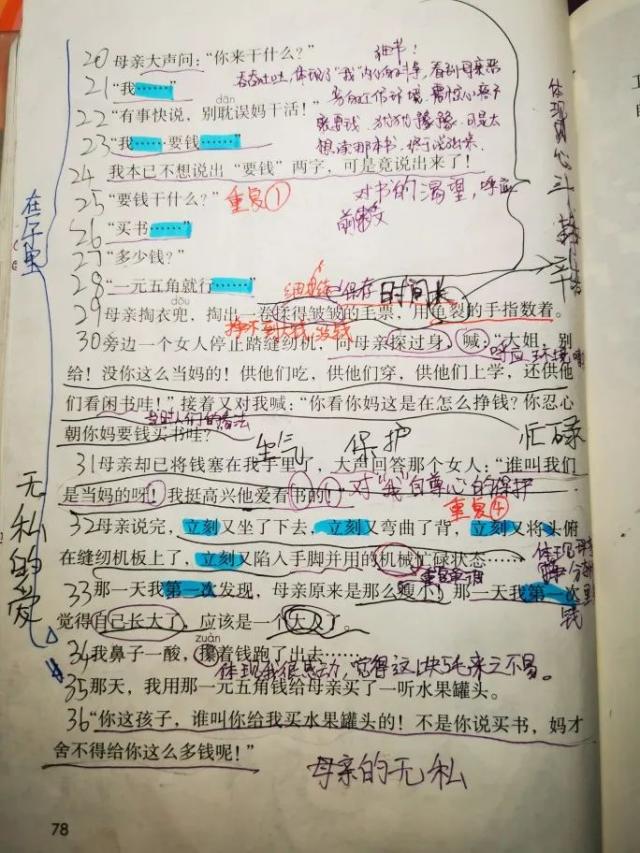 20 母亲大声问:“你来干什么?”
细节!
21 “我……”
吞吞吐吐,体现了“我”内心的斗争,看到母亲恶
dān
22 “有事快说,别耽误妈干活!”
23 “我……要钱……”
24 我本已不想说出“要钱”两字,可是竟说出来了!
想读那本书,终于说出来.
体现内心斗争
25 “要钱干什么?”
重复①
对书的渴望,呼应
前文
26 “买书……”
27 “多少钱?”
28 “一元五角就行……”
保存时间长
dōu
29 母亲掏衣兜,掏出一卷揉得皱皱的毛票,用龟裂的手指数着。
30 旁边一个女人停止踏缝纫机,向母亲探过身,喊:“大姐,别
呼应环境
给!没你这么当妈的!供他们吃,供他们穿,供他们上学,还供他
们看闲书哇!”接着又对我喊:“你看你妈这是在怎么挣钱?你忍心
当时人们的看法
朝你妈要钱买书哇?”
生气 保护
忙碌
31 母亲却已将钱塞在我手里了,大声回答那个女人:“谁叫我们
是当妈的呀!我挺高兴他爱看书的!”
对“我”自尊心的保护
重复④
32 母亲说完,立刻又坐了下去,立刻又弯曲了背,立刻又将头俯
在缝纫机板上了,立刻又陷入手脚并用的机械忙碌状态……
33 那一天我第一次发现,母亲原来是那么瘦小!那一天我第一次
觉得自己长大了,应该是一个大人了。
zuàn
34 我鼻子一酸,攥着钱跑了出去……
体现我很感动,觉得这1块5毛来之不易。
35 那天,我用那一元五角钱给母亲买了一听水果罐头。
36 “你这孩子,谁叫你给我买水果罐头的!不是你说买书,妈才
舍不得给你这么多钱呢!”
母亲的无私
无私的爱
78